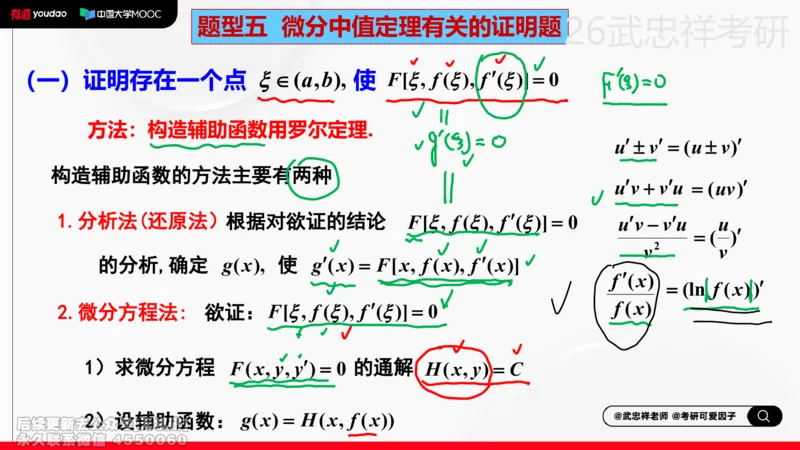 有道 youdao 中国大学MOOC
题型五 微分中值定理有关的证明题
26武忠祥考研
(一) 证明存在一个点 ξ∈(a,b), 使 F[ξ, f(ξ), f′(ξ)]=0
F′(ξ)=0
方法：构造辅助函数用罗尔定理.
g′(ξ)=0
u′±v′=(u±v)′
构造辅助函数的方法主要有两种
u′v+v′u=(uv)′
1.分析法(还原法) 根据对欲证的结论 F[ξ, f(ξ), f′(ξ)]=0
(u′v−v′u)/v²=(u/v)′
的分析,确定 g(x), 使 g′(x)=F[x, f(x), f′(x)]
f′(x)/f(x)=(ln|f(x)|)′
2.微分方程法: 欲证：F[ξ, f(ξ), f′(ξ)]=0
1) 求微分方程 F(x, y, y′)=0 的通解 H(x, y)=C
2) 设辅助函数：g(x)=H(x, f(x))
@武忠祥老师 @考研可爱因子
永久联系微信 4550060